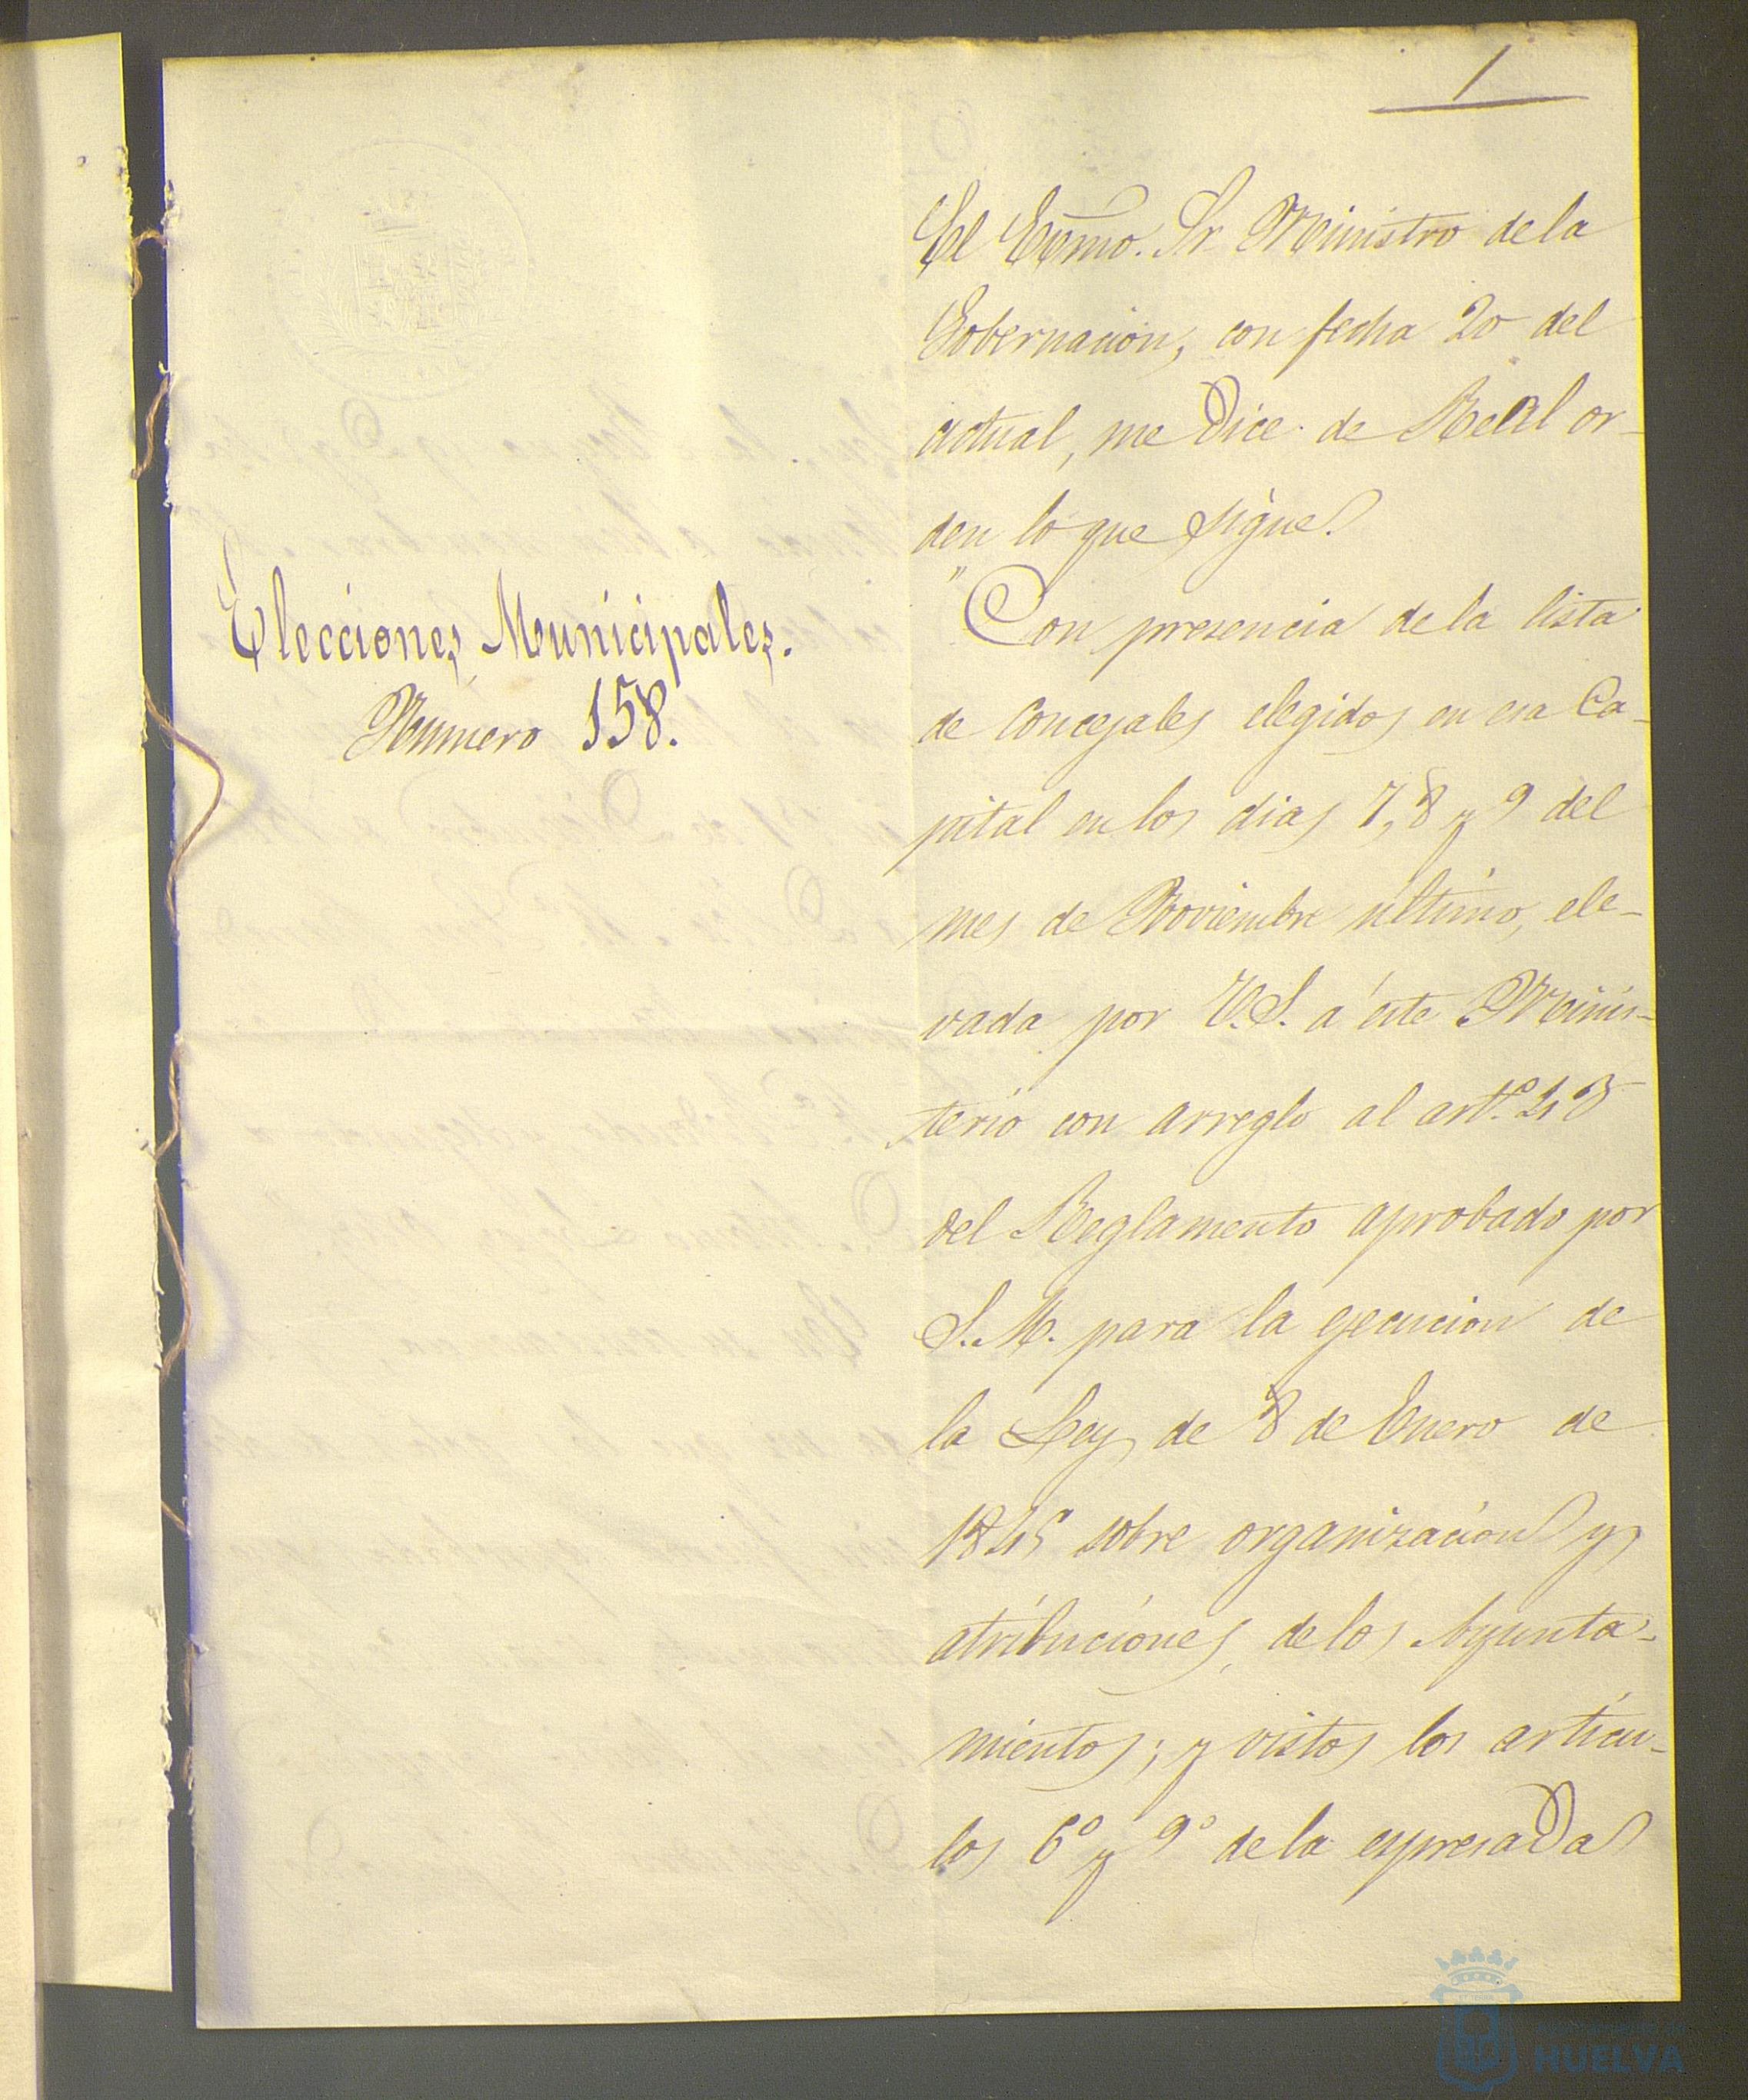 1
Elecciones Municipales.
Numero 158.
El Exmo. Sr Ministro de la
Gobernacion, con fecha 20 del
actual, me dice de Real or-
den lo que sigue.
"Con presencia de la lista
de Concejales elegidos en esa Ca-
pital en los dias 7, 8 y 9 del
mes de Noviembre último, ele-
vada por V.S. a este Minis-
terio con arreglo al artº. 48
del Reglamento aprobado por
S.M. para la ejecucion de
la Ley de 8 de Enero de
1845 sobre organizacion y
atribuciones de los Ayunta-
mientos; y vistos los articu-
los 6º y 9º de la espresada
HUELVA